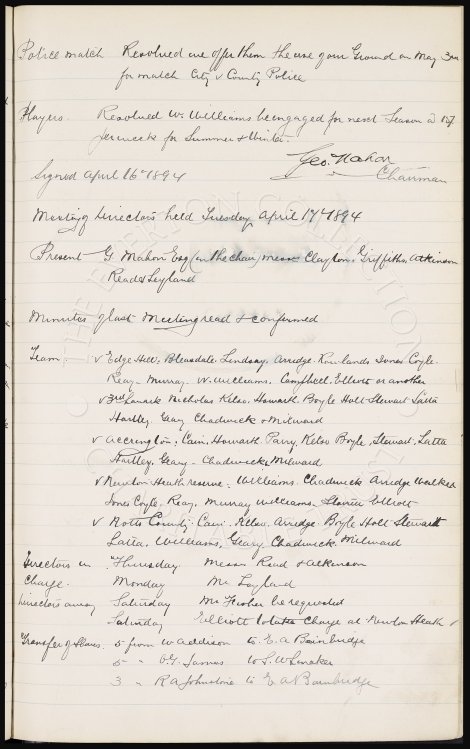 Police match Resolved we offer them the use of our Ground on May
for match City v County Police
Players. Resolved W. Williams be engaged for next Season @
per week for Summer & Winter.
Geo. Mahon
Chairman
Signed April 26th 1894
Meeting of Directors held Tuesday April 17th 1894
Present G. Mahon Esq (in the chair) Messrs Clayton, Griffiths, Atkinson
Read & Leyland
Minutes of last Meeting read & confirmed
Team. v Edge Hill, Bleasdale. Lindsay. Arridge. Rowlands Jones Coyle.
Reay. Murray. W. Williams. Campbell. Elliott or another
v 3rd Lanark Nicholas Kelso. Howarth. Boyle Holt Stewart Latta
Hartley Geary Chadwick & Milward
v Accrington. Cain. Howarth Parry. Kelso Boyle. Stewart. Latta
Hartley. Geary. Chadwick, Milward
v Newton Heath reserve. Williams. Chadwick Arridge Walker
Jones Coyle. Reay, Murray Williams. Elliott
v Notts County. Cain. Kelso. Arridge. Boyle Holt Stewart
Latta. Williams, Geary. Chadwick. Milward
Directors in Thursday Messrs Read & Atkinson
Charge. Monday Mr Leyland
Directors away Saturday Mr be requested
Saturday Elliott to take Charge at Newton Heath
Transfer of Shares. 5 from W Addison to E. A Bainbridge
5 " James to S. W
3 " R A Johnstone to E A Bainbridge
THE EVERTON COLLECTION